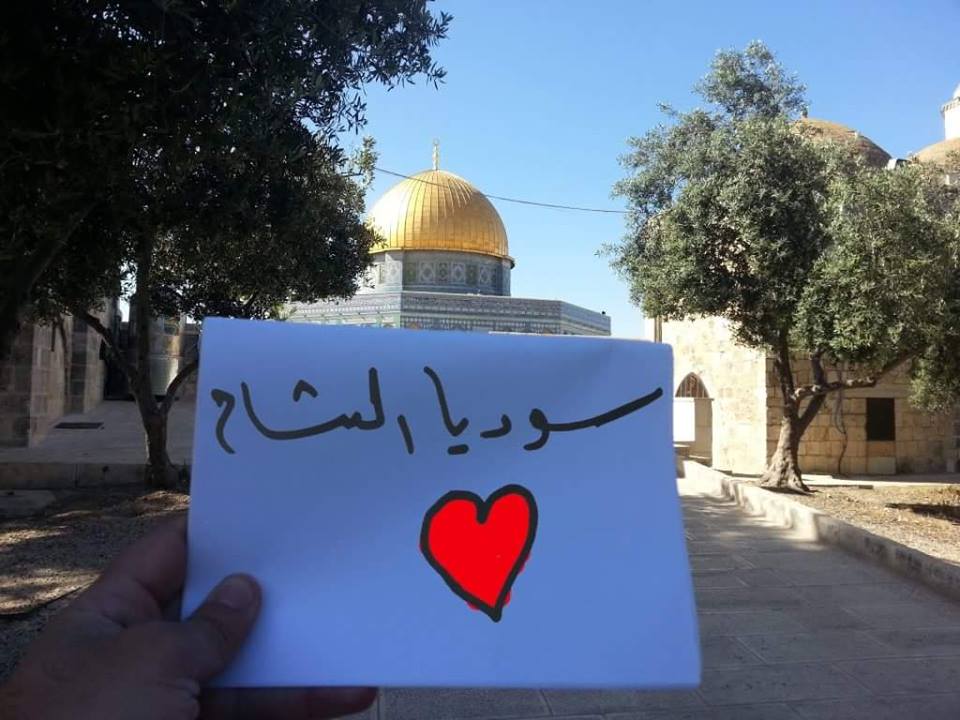 سوريا الشام